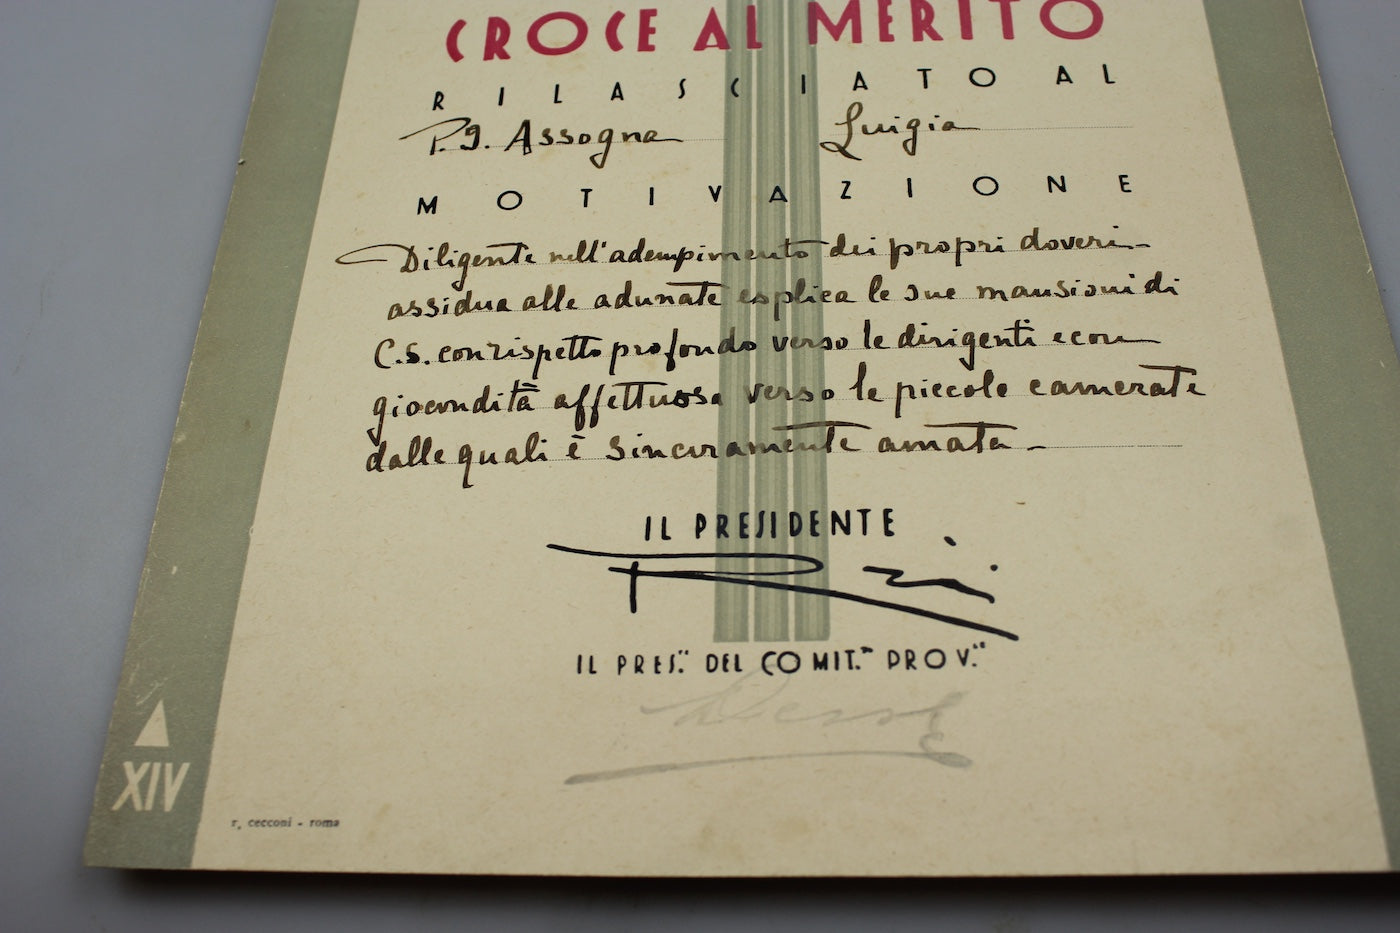 CROCE AL MERITO
RILASCIATO AL
P.I. Assogna Luigia
MOTIVAZIONE
Diligente nell'adempimento dei propri doveri
assidua alle adunate esplica le sue mansioni di
C.S. con rispetto profondo verso le dirigenti e con
giocondità affettuosa verso le piccole camerate
dalle quali è sinceramente amata -
IL PRESIDENTE
IL PRES.TE DEL COMIT.TO PROV.LE
A XIV
r. cecconi - roma